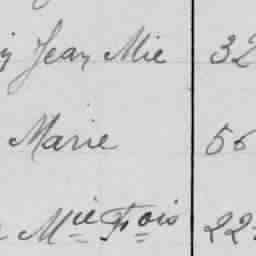 Jean Mie 32
Marie 56
Mie Fois 22